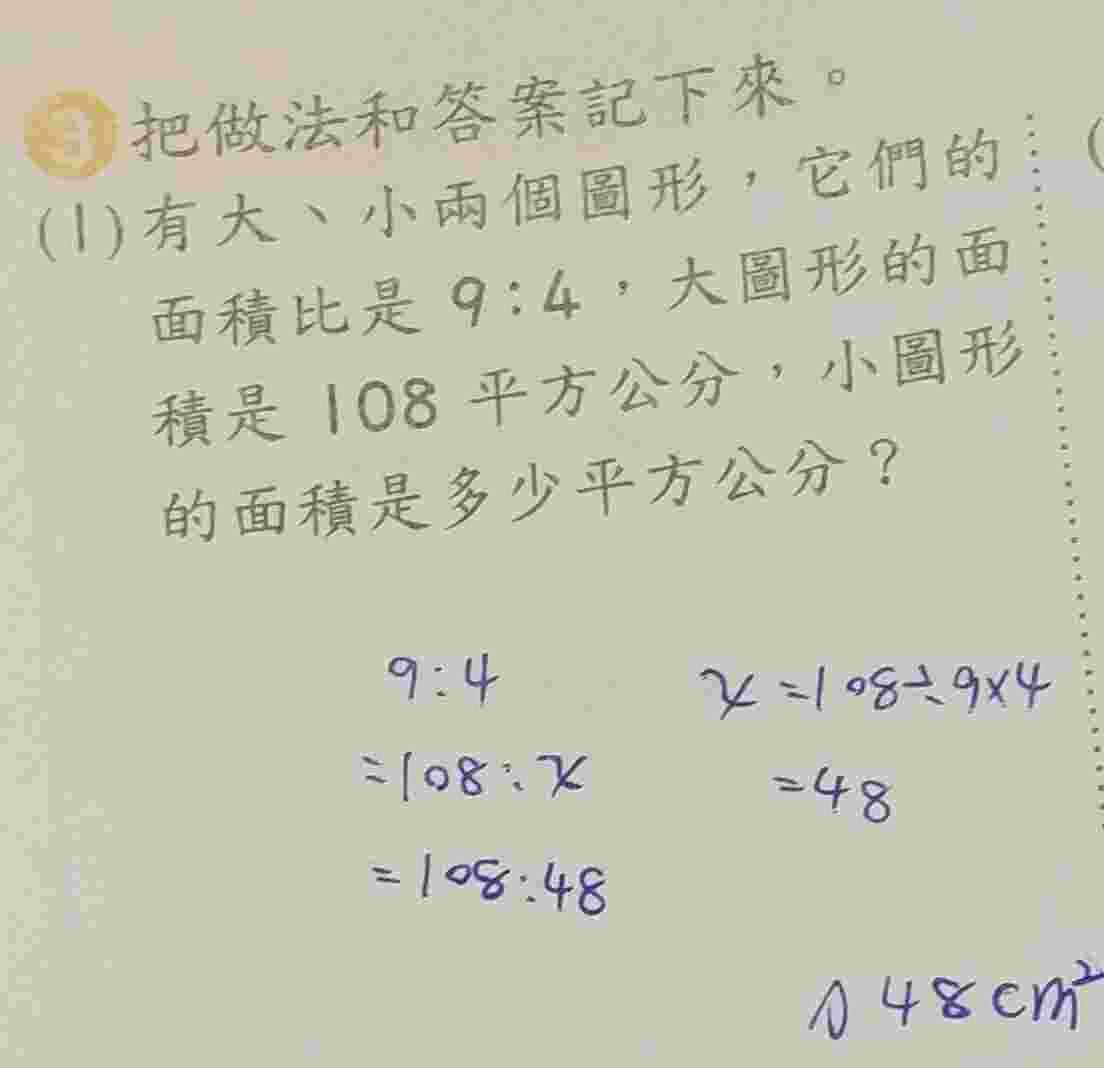 3 把做法和答案記下來。
(1)有大、小兩個圖形，它們的
面積比是 9:4，大圖形的面
積是 108 平方公分，小圖形
的面積是多少平方公分？
9:4
=108:x
=108:48
x=108÷9×4
=48
48cm²
(